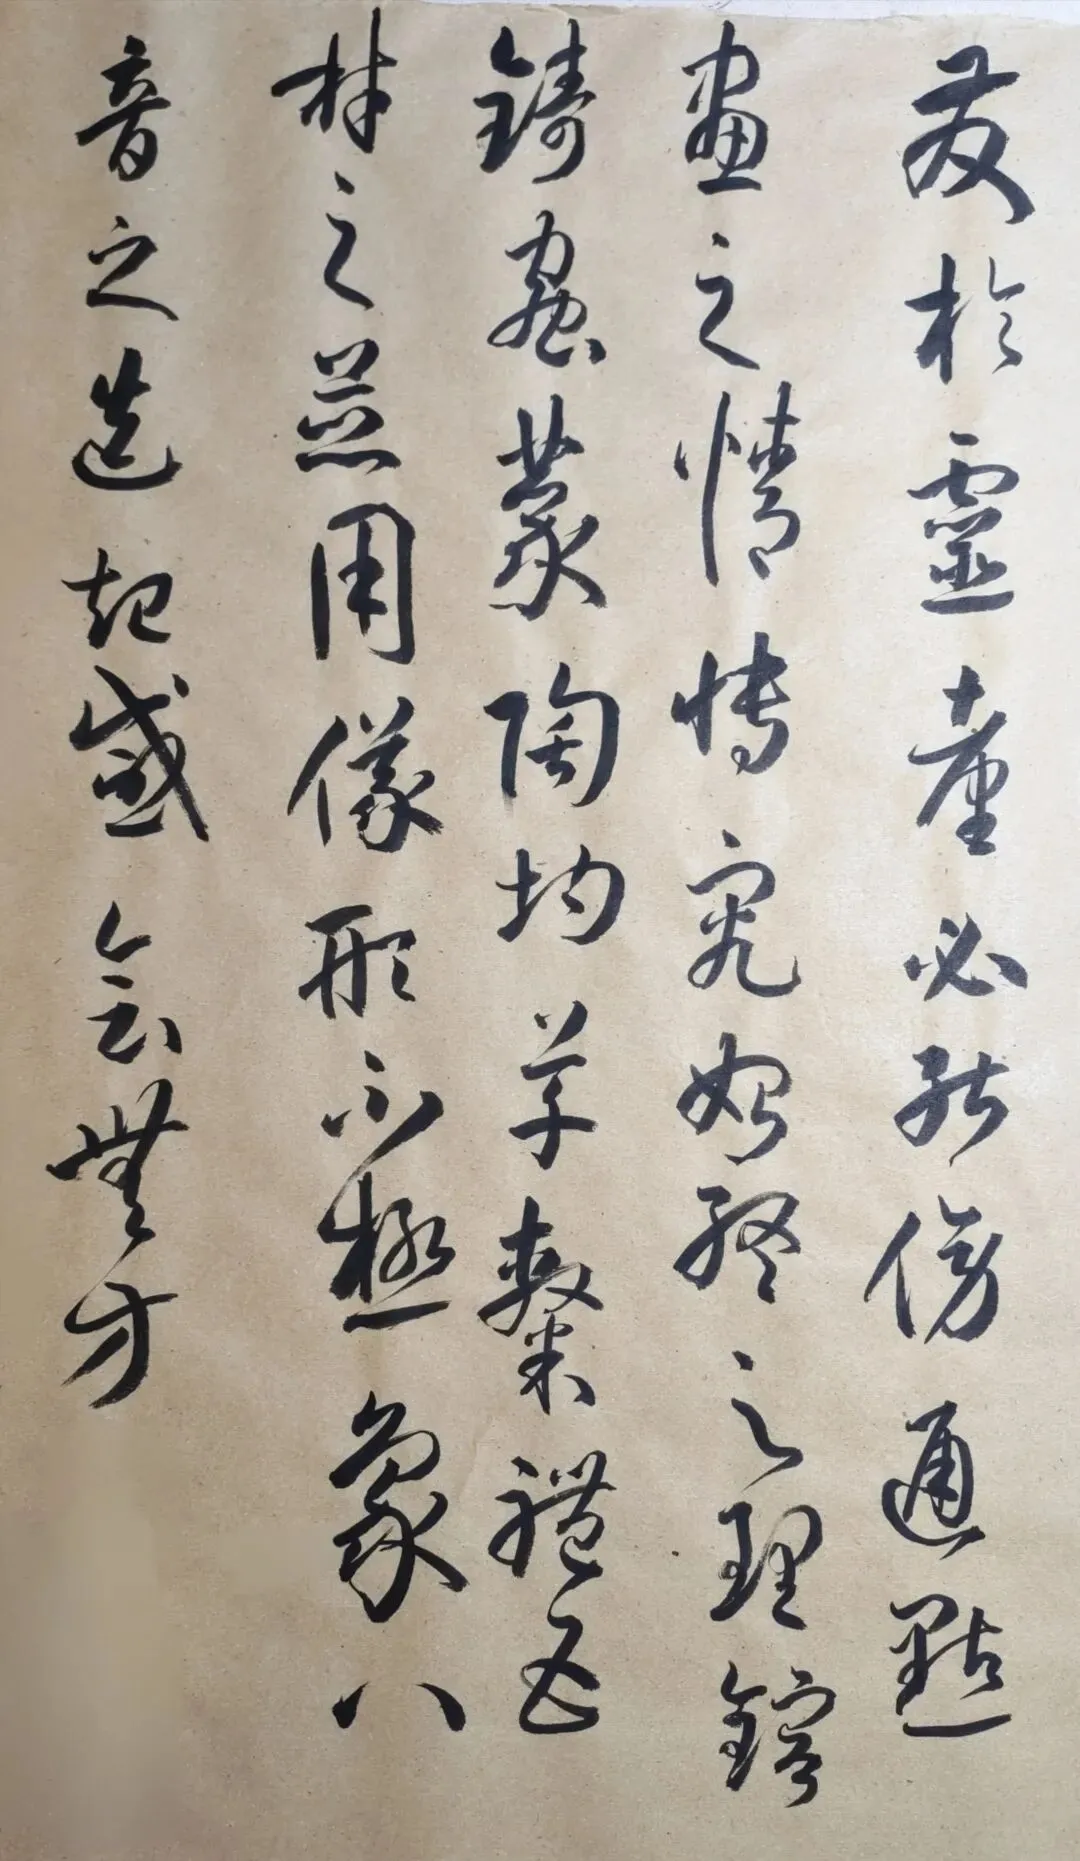 發於靈臺必能傍通點
畫之情博究始終之理鎔
鑄蟲篆陶均草隸體五
材之並用儀形不極象八
音之迭起感會無方